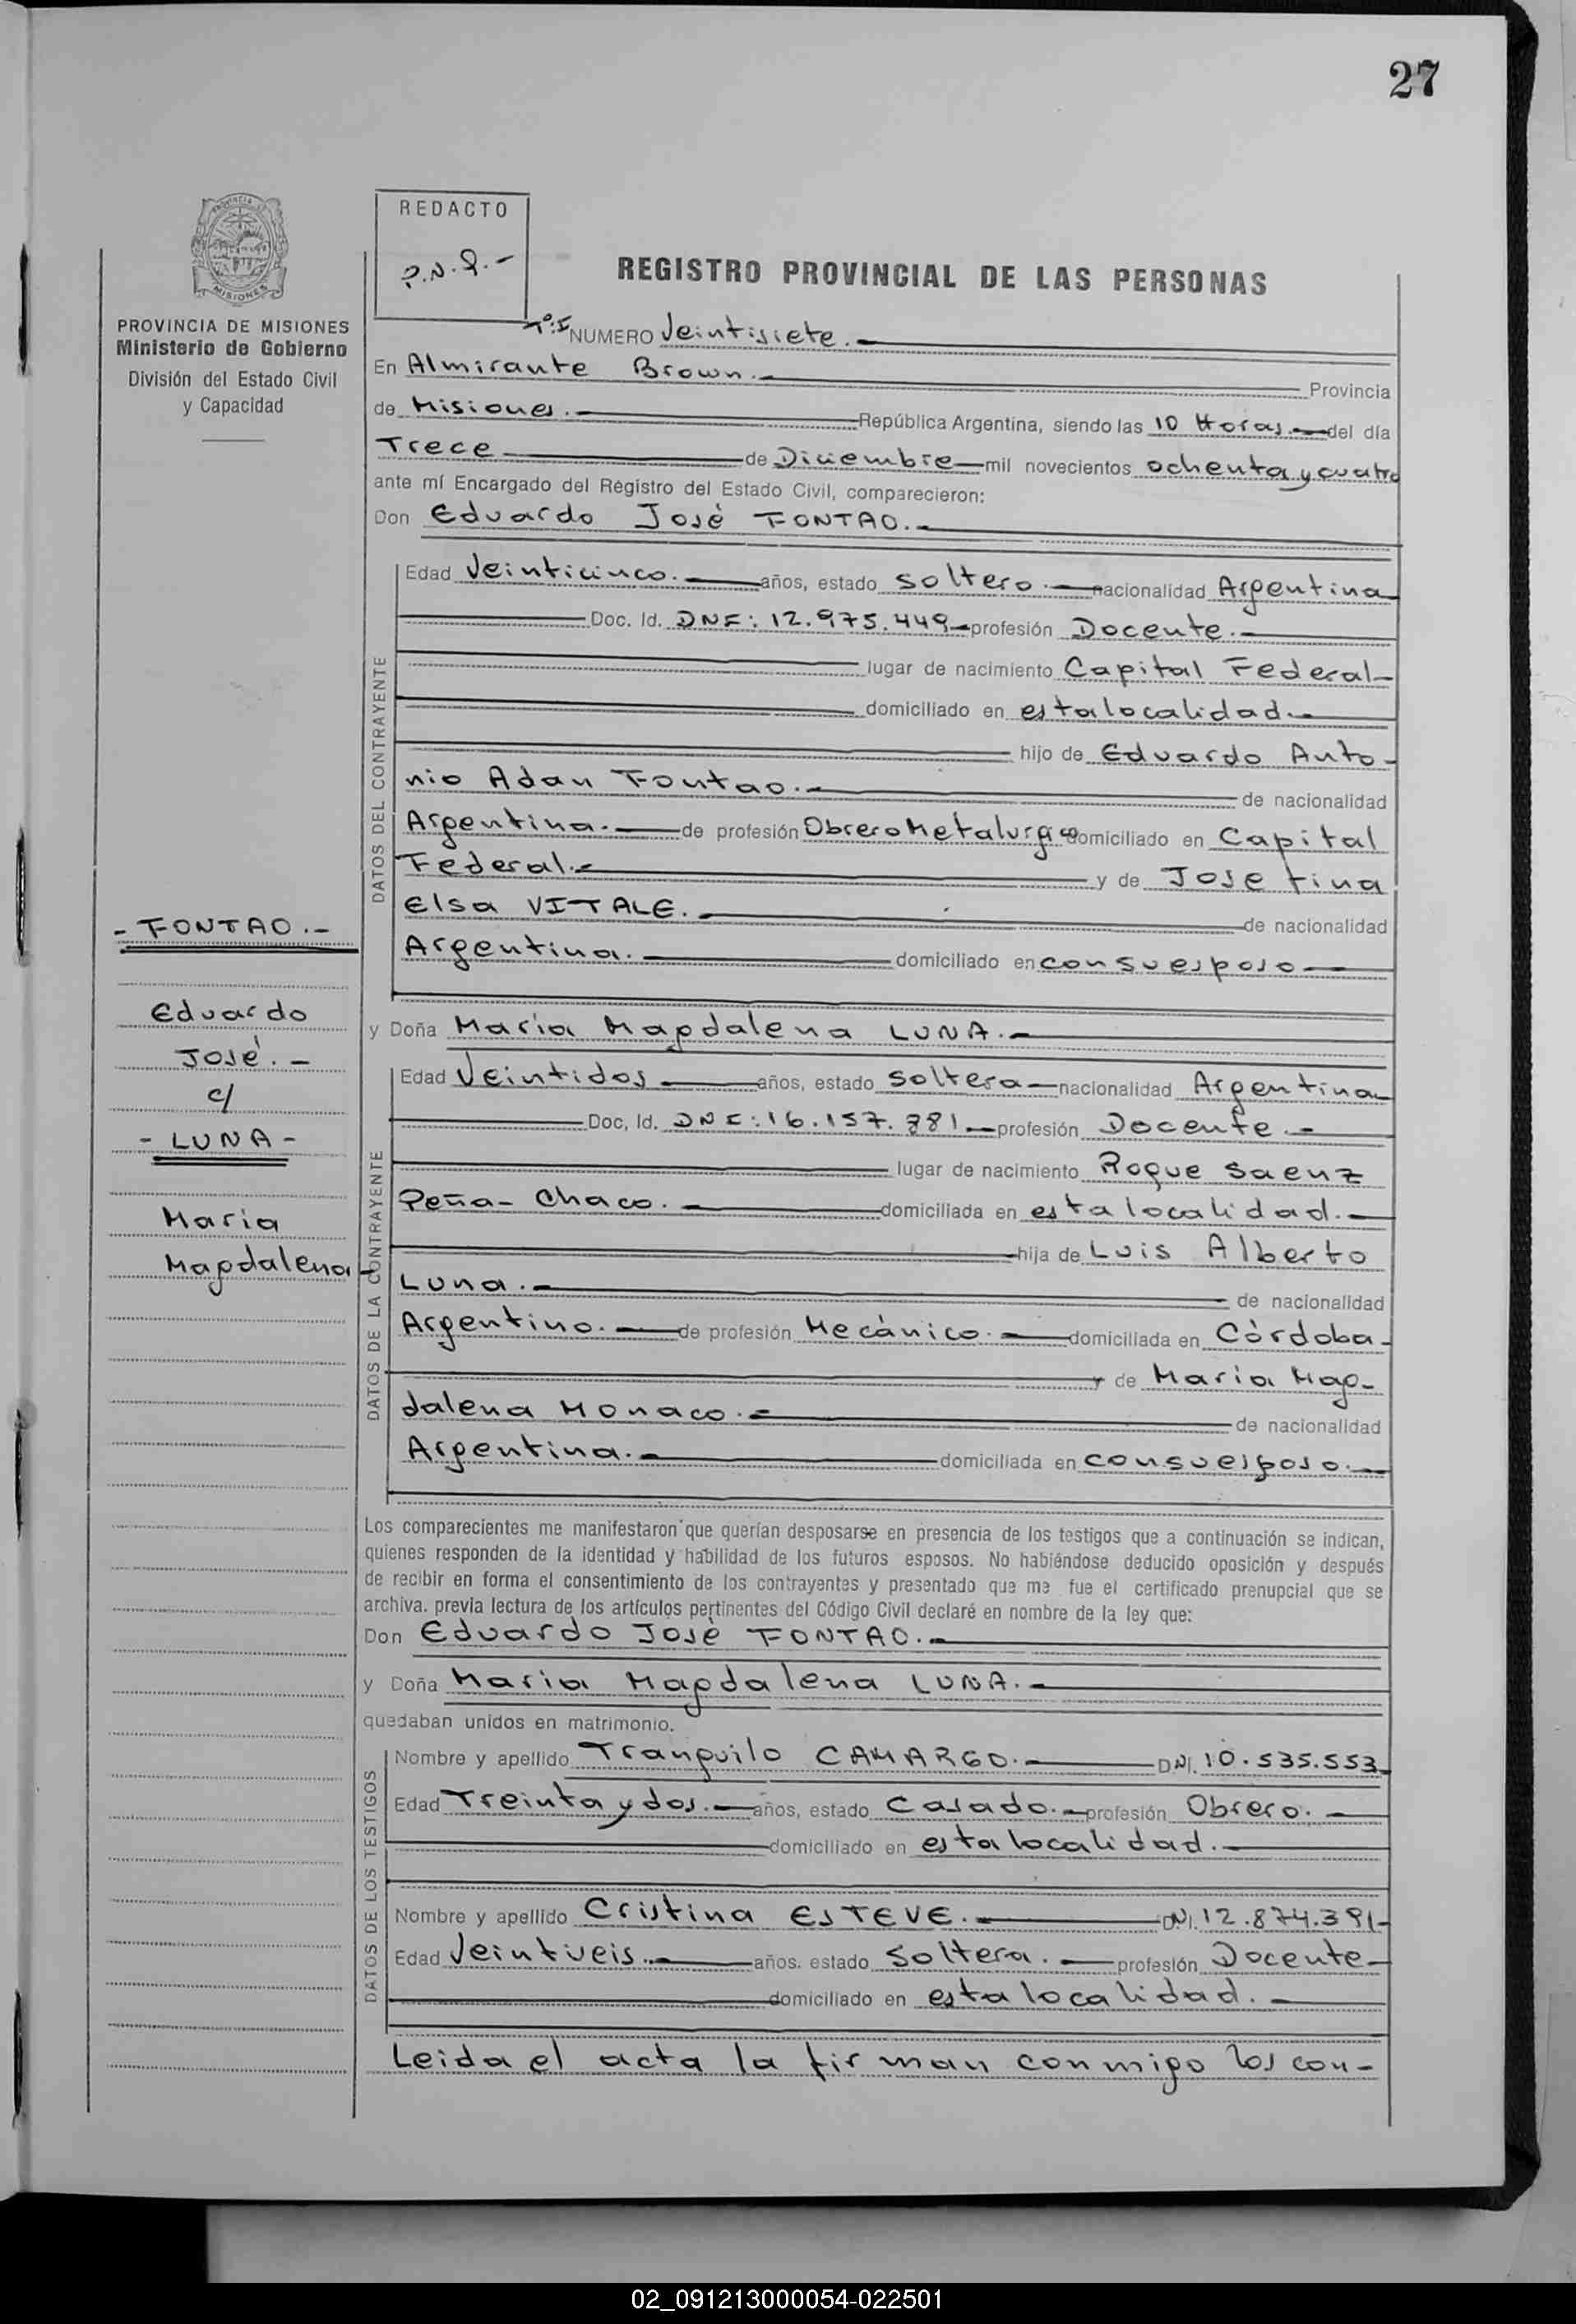 27
REDACTO
P.N.R.-
PROVINCIA DE MISIONES
Ministerio de Gobierno
División del Estado Civil
y Capacidad
REGISTRO PROVINCIAL DE LAS PERSONAS
Tº:I NUMERO Veintisiete.-
En Almirante Brown.- Provincia
de Misiones.- República Argentina, siendo las 10 Horas.- del día
Trece de Diciembre mil novecientos ochenta y cuatro
ante mí Encargado del Registro del Estado Civil, comparecieron:
Don Eduardo José FONTAO.-
DATOS DEL CONTRAYENTE
Edad Veinticinco.- años, estado soltero.- nacionalidad Argentina
Doc. Id. DNI: 12.975.449- profesión Docente.-
lugar de nacimiento Capital Federal-
domiciliado en esta localidad.-
hijo de Eduardo Anto-
nio Adan Fontao.- de nacionalidad
Argentina.- de profesión Obrero Metalurgico domiciliado en Capital
Federal.- y de Josefina
Elsa VITALE.- de nacionalidad
Argentina.- domiciliado en con su esposo-
y Doña María Magdalena LUNA.-
DATOS DE LA CONTRAYENTE
Edad Veintidos años, estado soltera- nacionalidad Argentina
Doc, Id. DNI: 16.157.881.- profesión Docente.-
lugar de nacimiento Roque Saenz
Peña- Chaco.- domiciliada en esta localidad.-
hija de Luis Alberto
Luna.- de nacionalidad
Argentino.- de profesión Mecánico.- domiciliada en Córdoba-
y de María Mag-
dalena Monaco.- de nacionalidad
Argentina.- domiciliada en con su esposo.-
- FONTAO.-
Eduardo
José.-
c/
- LUNA -
Maria
Magdalena-
Los comparecientes me manifestaron que querían desposarse en presencia de los testigos que a continuación se indican,
quienes responden de la identidad y habilidad de los futuros esposos. No habiéndose deducido oposición y después
de recibir en forma el consentimiento de los contrayentes y presentado que me fue el certificado prenupcial que se
archiva. previa lectura de los artículos pertinentes del Código Civil declaré en nombre de la ley que:
Don Eduardo José FONTAO.-
y Doña Maria Magdalena LUNA.-
quedaban unidos en matrimonio.
DATOS DE LOS TESTIGOS
Nombre y apellido Tranquilo CAMARGO.- DNI. 10.535.553-
Edad Treinta y dos.- años, estado Casado.- profesión Obrero.-
domiciliado en esta localidad.-
Nombre y apellido Cristina ESTEVE.- DNI. 12.874.391-
Edad Veintiseis.- años. estado Soltera.- profesión Docente-
domiciliado en esta localidad.-
Leida el acta la firman conmigo los con-
02_091213000054-022501